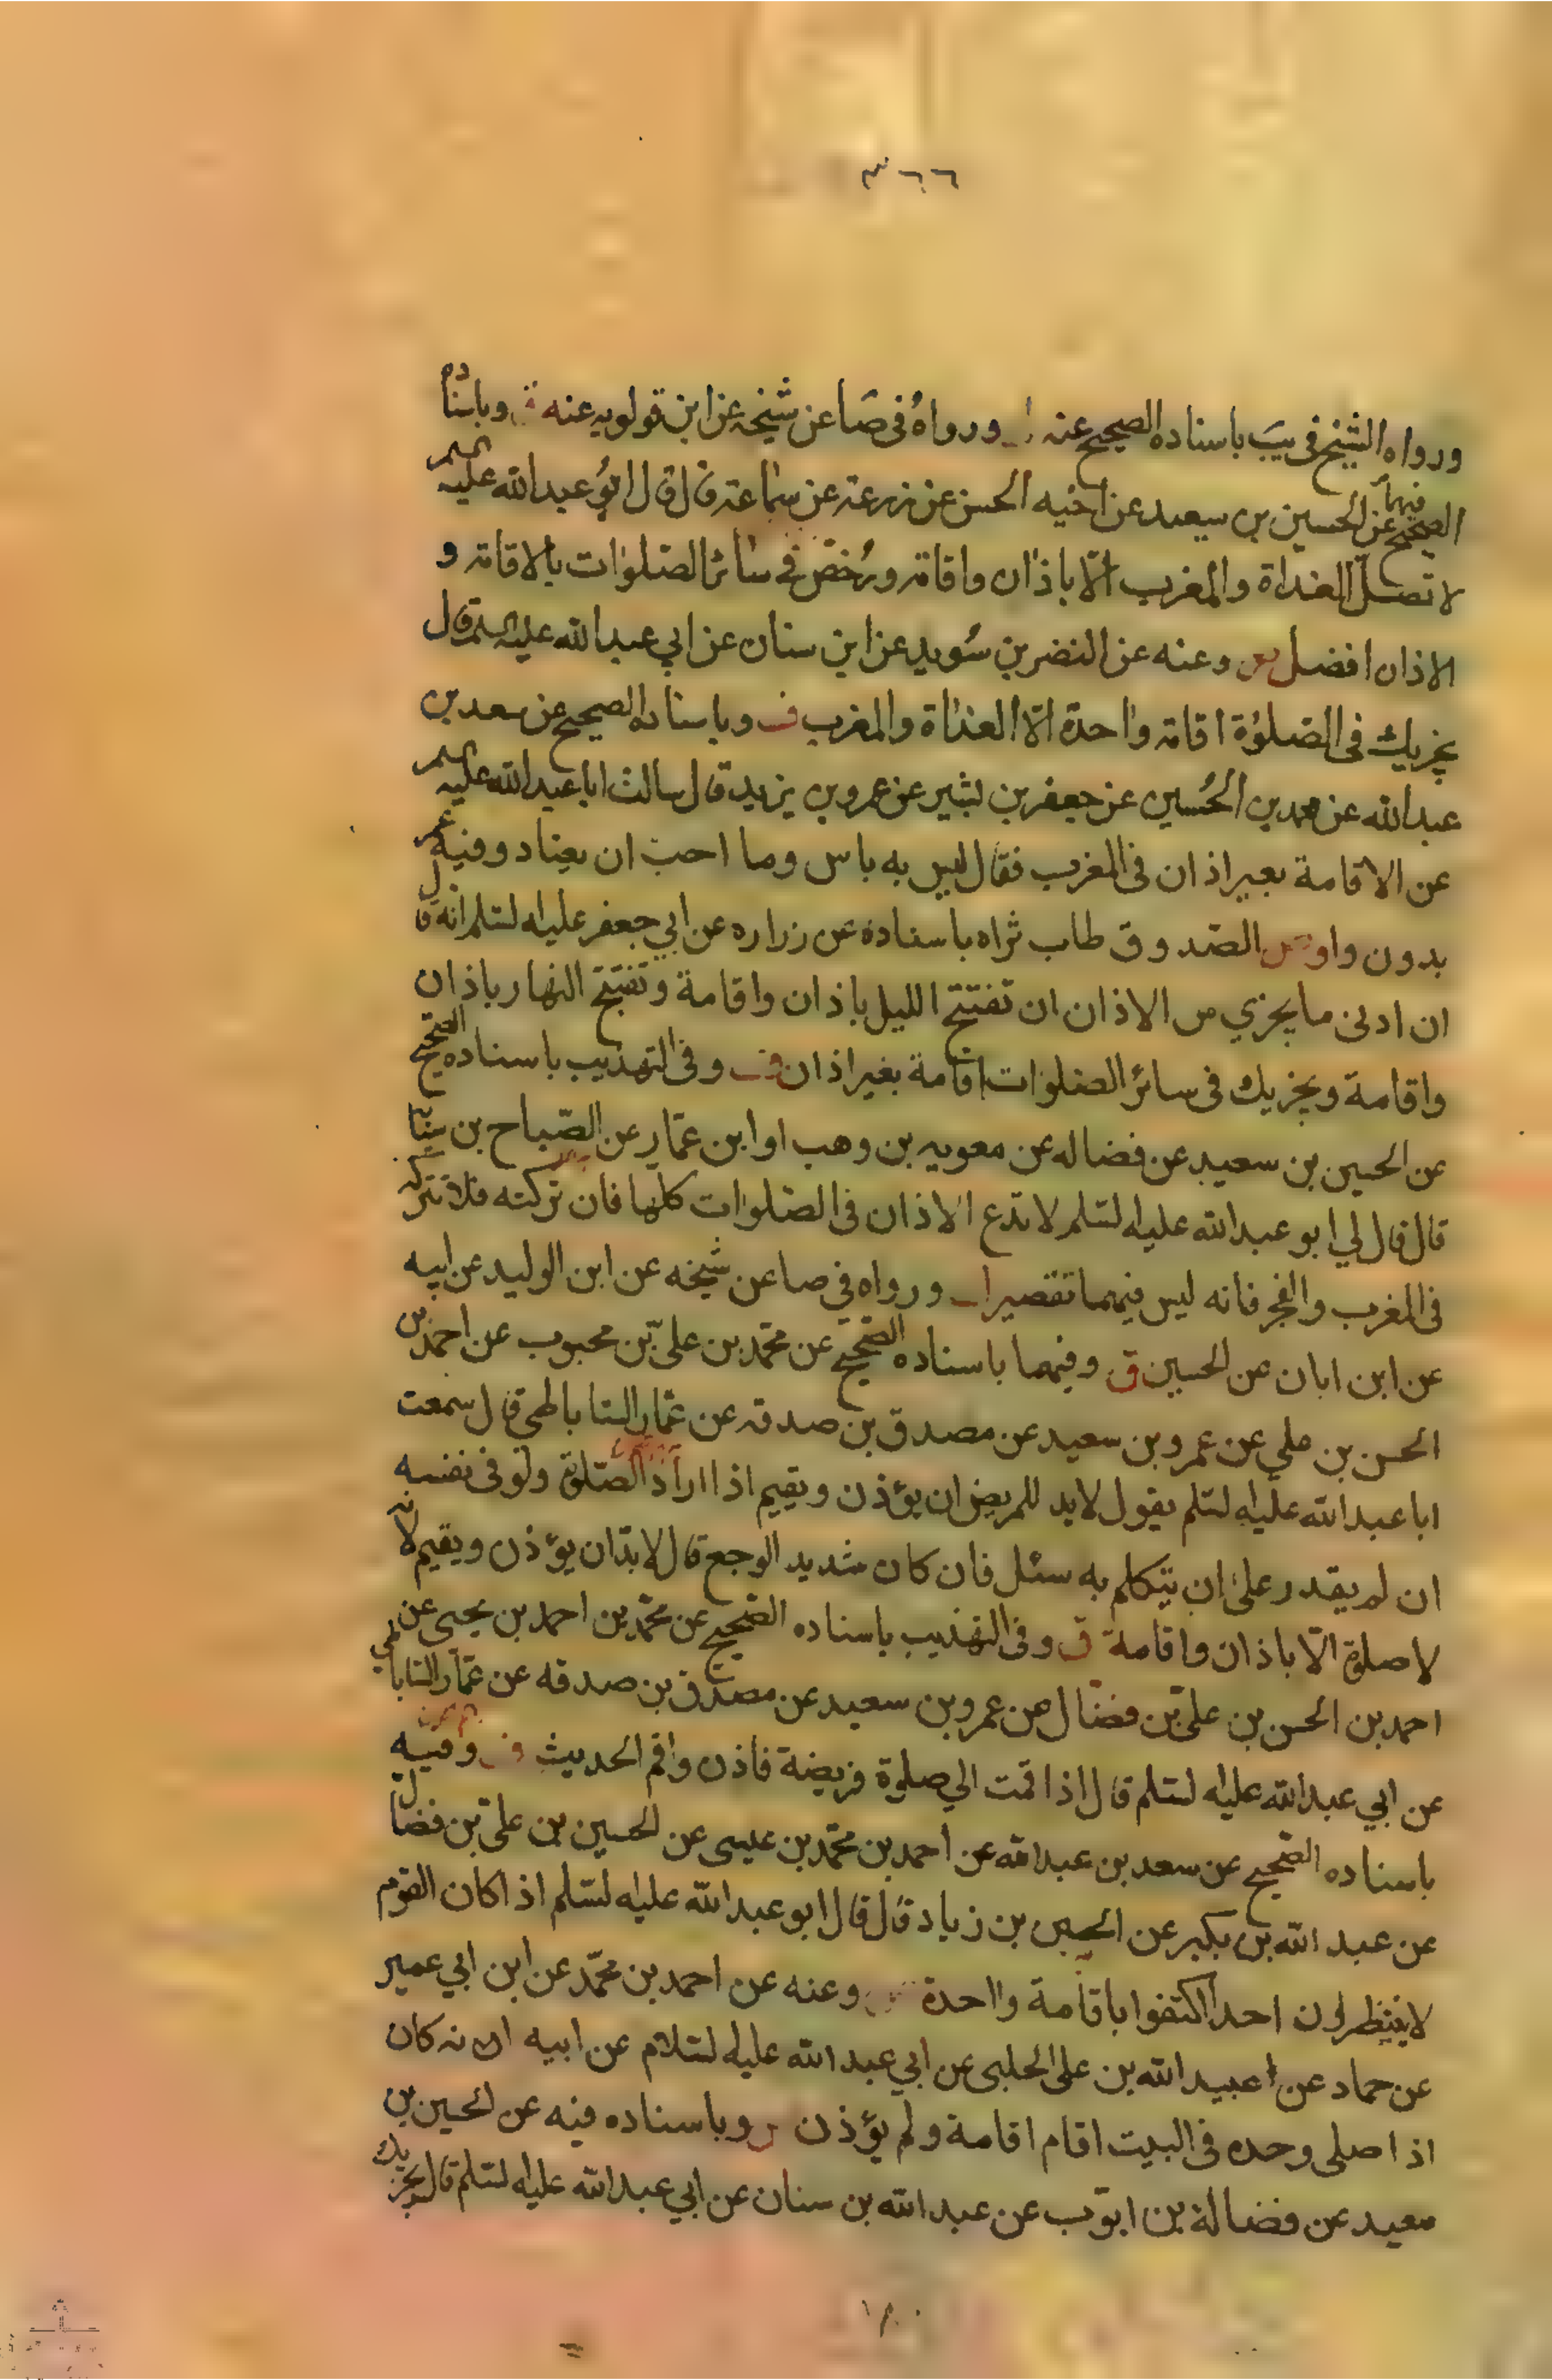 ٣٦٦
ورواه الشيخ في يب باسناده الصحيح عنه ورواه في صا عن شيخه عن ابن قولويه عنه وباسناده
الصحيح فيهما عن الحسين بن سعيد عن اخيه الحسن عن زرعة عن سماعة قال قال ابو عبدالله عليه السلم
لا تصل الغداة والمغرب الا باذان واقامة ورخص في سائر الصلوات بالاقامة و
الاذان افضل وعنه عن النضر بن سويد عن ابن سنان عن ابي عبدالله عليه السلم قال
يجزيك في الصلوة اقامة واحدة الا الغداة والمغرب ف وباسناده الصحيح عن سعد بن
عبدالله عن محمد بن الحسين عن جعفر بن بشير عن عمر بن يزيد قال سالت ابا عبدالله عليه السلم
عن الاقامة بغير اذان في المغرب فقال ليس به باس وما احب ان يعتاد وفيه عمر
بدون واو الصدوق طاب ثراه باسناده عن زراره عن ابي جعفر عليه السلم انه قال
ان ادنى ما يجزي من الاذان ان تفتتح الليل باذان واقامة وتفتتح النهار باذان
واقامة ويجزيك في سائر الصلوات اقامة بغير اذان وفي التهذيب باسناده الصحيح
عن الحسين بن سعيد عن فضاله عن معويه بن وهب او ابن عمار عن الصباح بن سيابه
قال قال لي ابو عبدالله عليه السلم لا تدع الاذان في الصلوات كلها فان تركته فلا تتركه
في المغرب والفجر فانه ليس فيهما تقصير ورواه في صا عن شيخه عن ابن الوليد عن ابيه
عن ابن ابان عن الحسين ق وفيهما باسناده الصحيح عن محمد بن علي بن محبوب عن احمد بن
الحسن بن علي عن عمرو بن سعيد عن مصدق بن صدقه عن عمار الساباطي قال سمعت
ابا عبدالله عليه السلم يقول لابد للمريض ان يؤذن ويقيم اذا اراد الصلوة ولو في نفسه
ان لم يقدر على ان يتكلم به سئل فان كان شديد الوجع قال لابد ان يؤذن ويقيم لانه
لا صلوة الا باذان واقامة ق وفي التهذيب باسناده الصحيح عن محمد بن احمد بن يحيى عن
احمد بن الحسن بن علي بن فضال عن عمرو بن سعيد عن مصدق بن صدقه عن عمار الساباطي
عن ابي عبدالله عليه السلم قال اذا قمت الي صلوة فريضة فاذن واقم الحديث وفيه
باسناده الصحيح عن سعد بن عبدالله عن احمد بن محمد بن عيسى عن الحسين بن علي بن فضال
عن عبد الله بن بكير عن الحسن بن زياد قال قال ابو عبدالله عليه السلم اذا كان القوم
لا ينتظرون احدا اكتفوا باقامة واحدة وعنه عن احمد بن محمد عن ابن ابي عمير
عن حماد عن عبيد الله بن علي الحلبي عن ابي عبد الله عليه السلام عن ابيه انه كان
اذا صلى وحده في البيت اقام اقامة ولم يؤذن وباسناده فيه عن الحسين بن
سعيد عن فضالة بن ايوب عن عبدالله بن سنان عن ابي عبدالله عليه السلم قال يجزيك
١٨٠